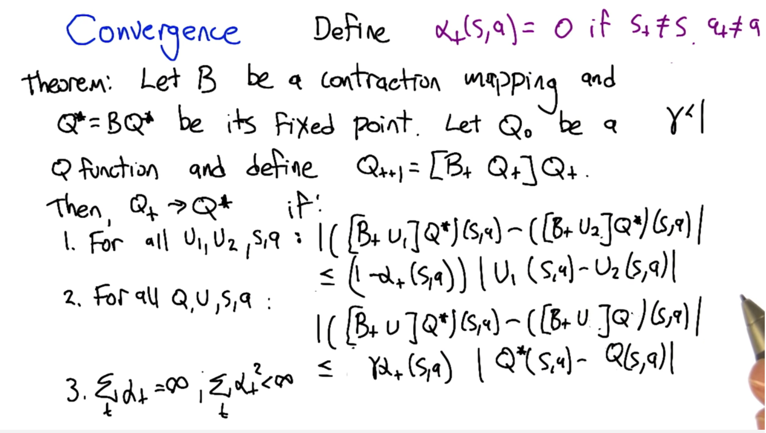 Convergence Define α_t(s,a) = 0 if s_t≠s, a_t≠a
Theorem: Let B be a contraction mapping and
Q* = BQ* be its fixed point. Let Q₀ be a γ<1
Q function and define Q_{t+1} = [B_t Q_t] Q_t.
Then, Q_t → Q* if:
1. For all U₁, U₂, s,a : |([B_t U₁]Q*)(s,a) − ([B_t U₂]Q*)(s,a)|
≤ (1−α_t(s,a)) | U₁(s,a) − U₂(s,a)|
2. For all Q, U, s, a :
|([B_t U]Q*)(s,a) − ([B_t U]Q)(s,a)|
≤ γα_t(s,a) | Q*(s,a) − Q(s,a)|
3. Σ_t α_t = ∞ ; Σ_t α_t² < ∞